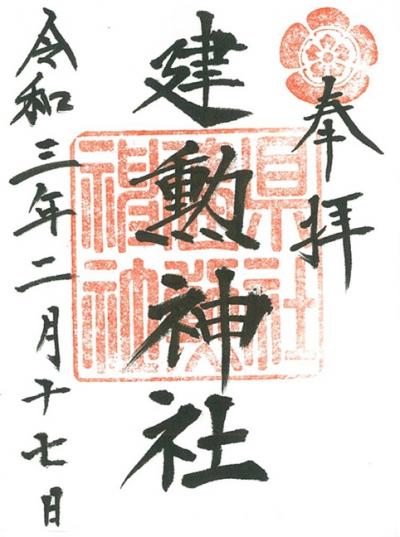 奉拝
建勲神社
令和三年二月十七日
県社